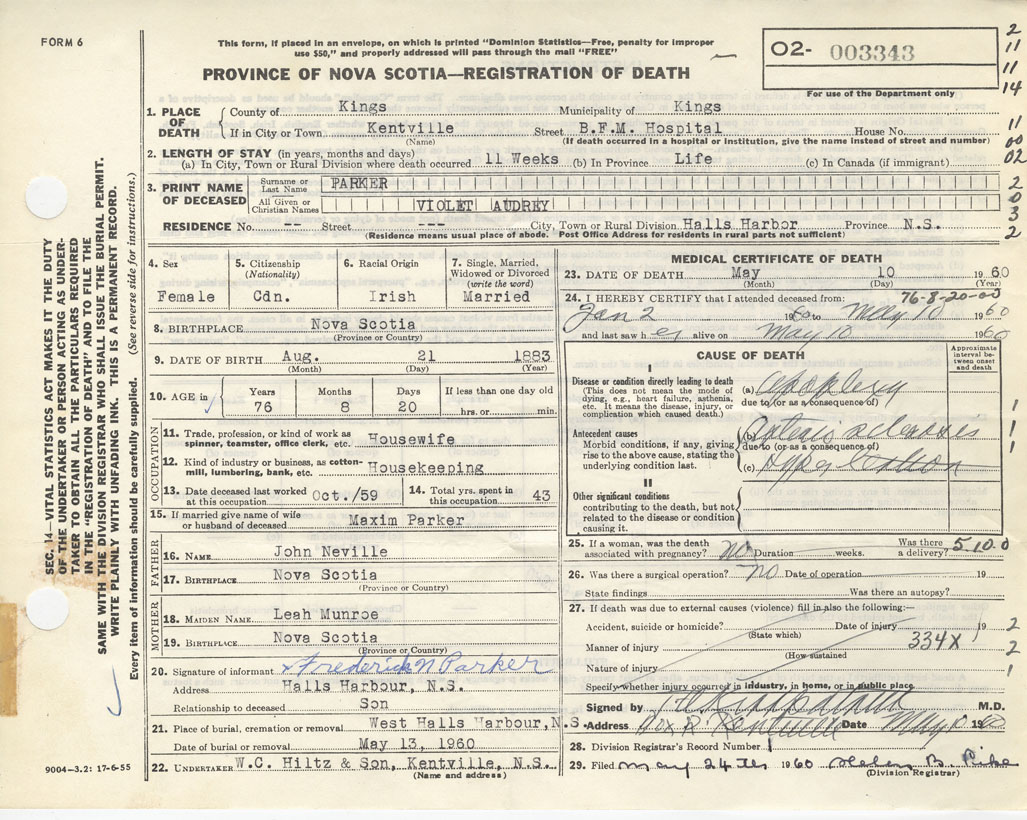 FORM 6
This form, if placed in an envelope, on which is printed "Dominion Statistics—Free, penalty for improper
use $50," and properly addressed will pass through the mail "FREE"
PROVINCE OF NOVA SCOTIA—REGISTRATION OF DEATH
O2- 003343
For use of the Department only
2
11
11
14
11
00
02
2
0
3
2
1. PLACE OF DEATH
County of Kings Municipality of Kings
If in City or Town Kentville Street B.F.M. Hospital House No.
(Name) (If death occurred in a hospital or Institution, give the name instead of street and number)
2. LENGTH OF STAY (in years, months and days)
(a) In City, Town or Rural Division where death occurred 11 Weeks (b) In Province Life (c) In Canada (if immigrant)
3. PRINT NAME OF DECEASED
Surname or Last Name PARKER
All Given or Christian Names VIOLET AUDREY
RESIDENCE No. -- Street ---- City, Town or Rural Division Halls Harbor Province N.S.
(Residence means usual place of abode. Post Office Address for residents in rural parts not sufficient)
4. Sex
Female
5. Citizenship
(Nationality)
Cdn.
6. Racial Origin
Irish
7. Single, Married, Widowed or Divorced
(write the word)
Married
8. BIRTHPLACE Nova Scotia
(Province or Country)
9. DATE OF BIRTH Aug. 21 1883
(Month) (Day) (Year)
10. AGE in
Years 76
Months 8
Days 20
If less than one day old
hrs. or min.
OCCUPATION
11. Trade, profession, or kind of work as spinner, teamster, office clerk, etc. Housewife
12. Kind of industry or business, as cotton-mill, lumbering, bank, etc. Housekeeping
13. Date deceased last worked at this occupation Oct./59
14. Total yrs. spent in this occupation 43
15. If married give name of wife or husband of deceased Maxim Parker
FATHER
16. NAME John Neville
17. BIRTHPLACE Nova Scotia
(Province or Country)
MOTHER
18. MAIDEN NAME Leah Munroe
19. BIRTHPLACE Nova Scotia
(Province or Country)
20. Signature of informant x Frederick N Parker
Address Halls Harbour, N.S.
Relationship to deceased Son
21. Place of burial, cremation or removal West Halls Harbour, N.S.
Date of burial or removal May 13, 1960
22. UNDERTAKER W.C. Hiltz & Son, Kentville, N.S.
(Name and address)
MEDICAL CERTIFICATE OF DEATH
23. DATE OF DEATH May 10 1960
(Month) (Day) (Year)
76-8-20-00
24. I HEREBY CERTIFY that I attended deceased from:
Jan 2 1960 to May 10 1960
and last saw her alive on May 10 1960
CAUSE OF DEATH
Approximate interval between onset and death
I
Disease or condition directly leading to death
(This does not mean the mode of dying, e.g., heart failure, asthenia, etc. It means the disease, injury, or complication which caused death.)
(a) Apoplexy
due to (or as a consequence of)
Antecedent causes
Morbid conditions, if any, giving rise to the above cause, stating the underlying condition last.
(b) Arteriosclerosis
due to (or as a consequence of)
(c) Hypertension
1
1
1
II
Other significant conditions
contributing to the death, but not related to the disease or condition causing it.
25. If a woman, was the death associated with pregnancy? No Duration weeks. Was there a delivery? 5100
26. Was there a surgical operation? No Date of operation 19
State findings Was there an autopsy?
27. If death was due to external causes (violence) fill in also the following:—
Accident, suicide or homicide? Date of injury 19 2
(State which)
Manner of injury 334X 2
(How sustained
Nature of injury 1
Specify whether injury occurred in industry, in home, or in public place
Signed by M.D.
Address Box R Kentville Date May 10 1960
28. Division Registrar's Record Number
29. Filed May 24th 1960 Helen B. Pike
(Division Registrar)
SEC. 14—VITAL STATISTICS ACT MAKES IT THE DUTY
OF THE UNDERTAKER OR PERSON ACTING AS UNDER-
TAKER TO OBTAIN ALL THE PARTICULARS REQUIRED
IN THE "REGISTRATION OF DEATH" AND TO FILE THE
SAME WITH THE DIVISION REGISTRAR WHO SHALL ISSUE THE BURIAL PERMIT.
WRITE PLAINLY WITH UNFADING INK. THIS IS A PERMANENT RECORD.
Every item of information should be carefully supplied. (See reverse side for instructions.)
9004-3.2: 17-6-55